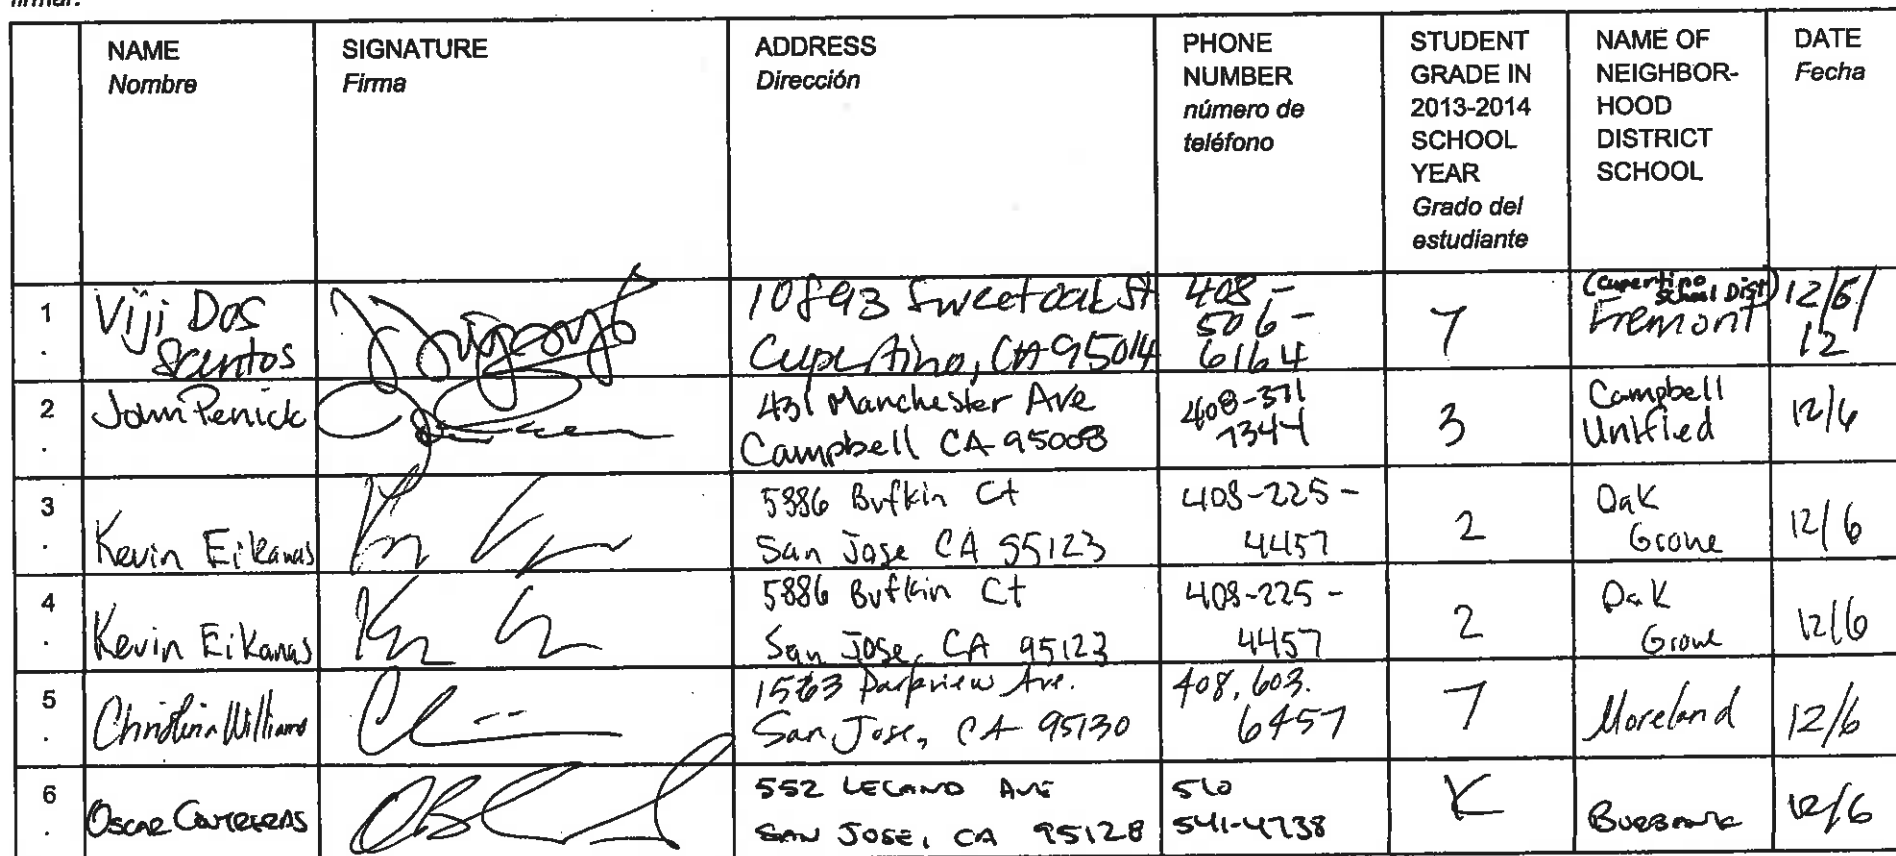 firmar.
NAME
Nombre
SIGNATURE
Firma
ADDRESS
Dirección
PHONE
NUMBER
número de
teléfono
STUDENT
GRADE IN
2013-2014
SCHOOL
YEAR
Grado del
estudiante
NAME OF
NEIGHBOR-
HOOD
DISTRICT
SCHOOL
DATE
Fecha
1
.
Viji Dos
Santos
10893 Sweetoak St
Cupertino, CA 95014
408-
506-
6164
7
(Cupertino
School Dist)
Fremont
12/6/
12
2
.
John Penick
431 Manchester Ave
Campbell CA 95008
408-371
7344
3
Campbell
Unified
12/6
3
.
Kevin Eikanas
5886 Bufkin Ct
San Jose CA 95123
408-225-
4457
2
Oak
Grove
12/6
4
.
Kevin Eikanas
5886 Bufkin Ct
San Jose, CA 95123
408-225-
4457
2
Oak
Grove
12/6
5
.
Christina Williams
Parkview Ave.
San Jose, CA 95130
408.603.
6457
7
Moreland
12/6
6
.
Oscar Contreras
552 LELAND AVE
SAN JOSE, CA 95128
510
541-4738
K
Burbank
12/6